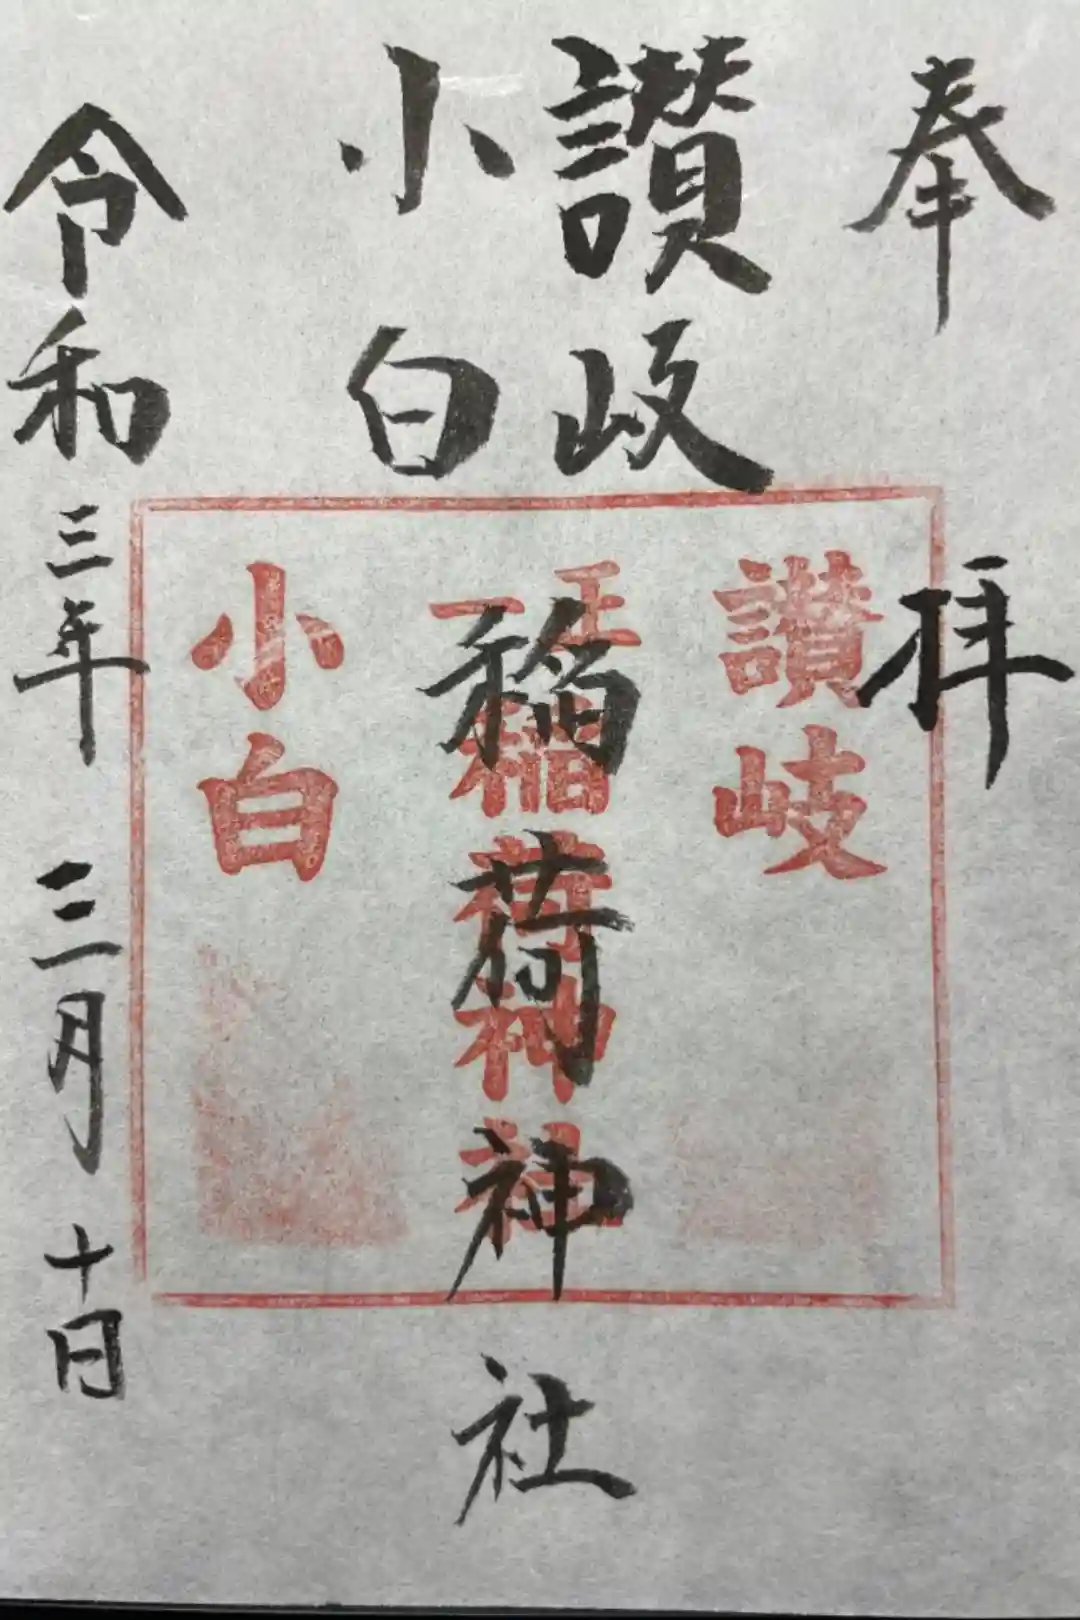 奉拝
讃岐
小白
稲荷神社
令和三年三月十日
讃岐
正一
稲荷神社
小白